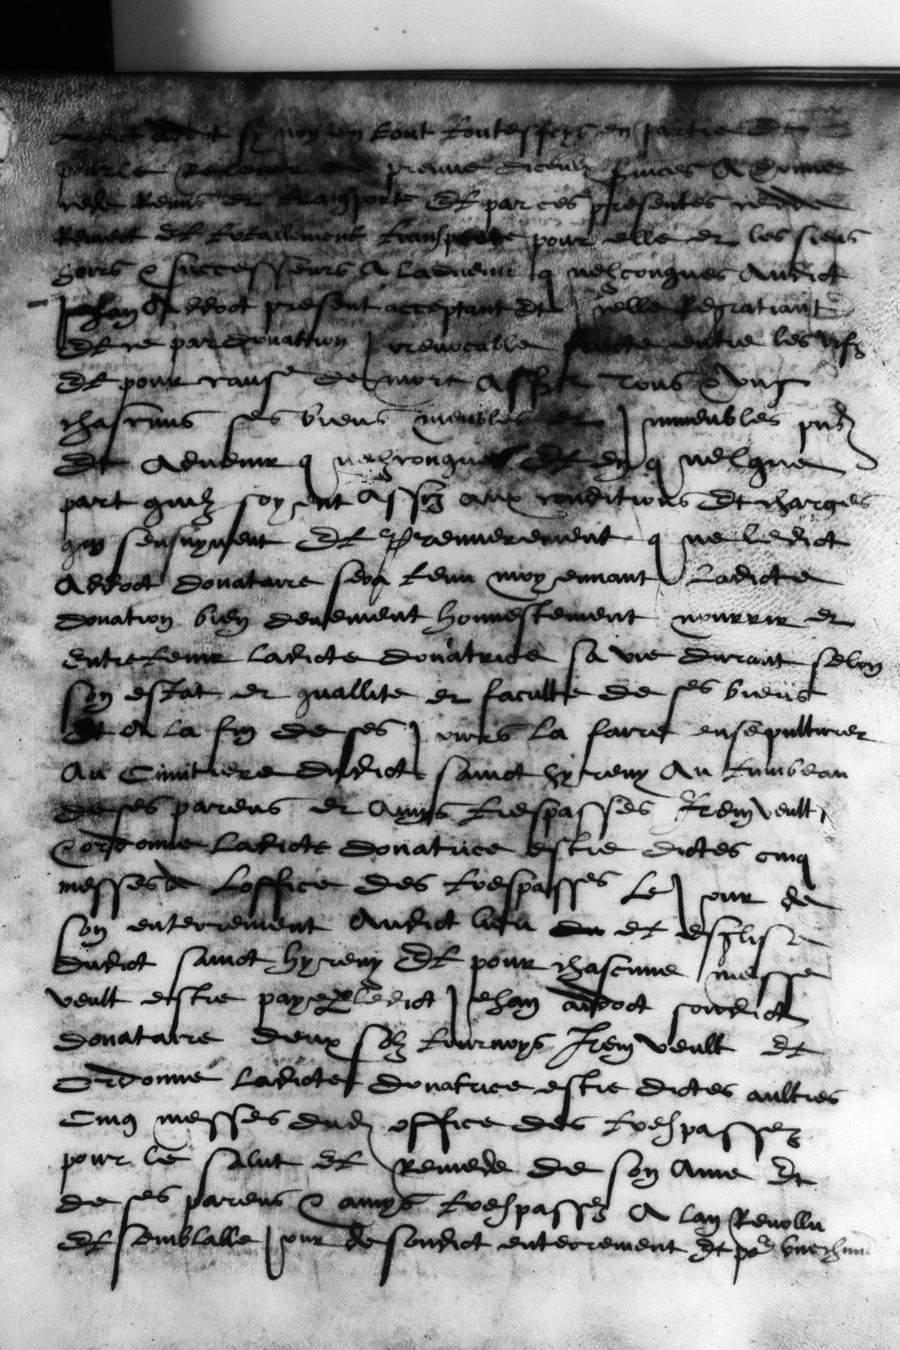 sy non en tout toutesffoys en partie Et
pour le premier
cede Remis et transporte Et par ces presentes cedde
Remect Et totallement transporte pour elle et les siens
hoirs & successeurs A ladvenir q uelzconques Audict
Jehan Addoot present acceptant Et Jcelle Regratiant
Et ce par donnation Jrrevocable faicte entre les vifz
Et pour cause de mort Assçr Tous & ungs
chascuns ses biens meubles et Jmmeubles pntz
Et Advenir q uelzconques Et En q uelque
part quilz soyent Assis aux conditions Et charges
qui sensuyvent Et Premierement q ue ledict
Addoot donataire sera tenu moyennant Ladicte
donation bien deuement honnestement nourrir et
Entretenir ladicte donatrice sa vie durant selon
son estat et quallite et faculte de ses biens
Et A la fin de ses Jours la faire ensepulturer
Au Cimitiere dudict sainct hyreny Au tumbeau
de ses parens et Amys trespasses Jtem veult
& ordonne Ladicte donatrice estre dictes cinq
messes de Loffice des trespasses Le Jour de
son enterrement Audict lieu et esglise
dudict sainct hyreny Et pour chascune messe
veult estre paye P ledict Jehan addoot sondict
donataire deux solz tournoys Jtem veult et
Ordonne Ladicte donatrice estre dictes aultres
Cinq messes dud office des trespassez
pour le salut Et Remede de son Ame Et
de ses parens & amys trespassez A lan Revollu
Et semblable Jour de sondict enterrement Et po